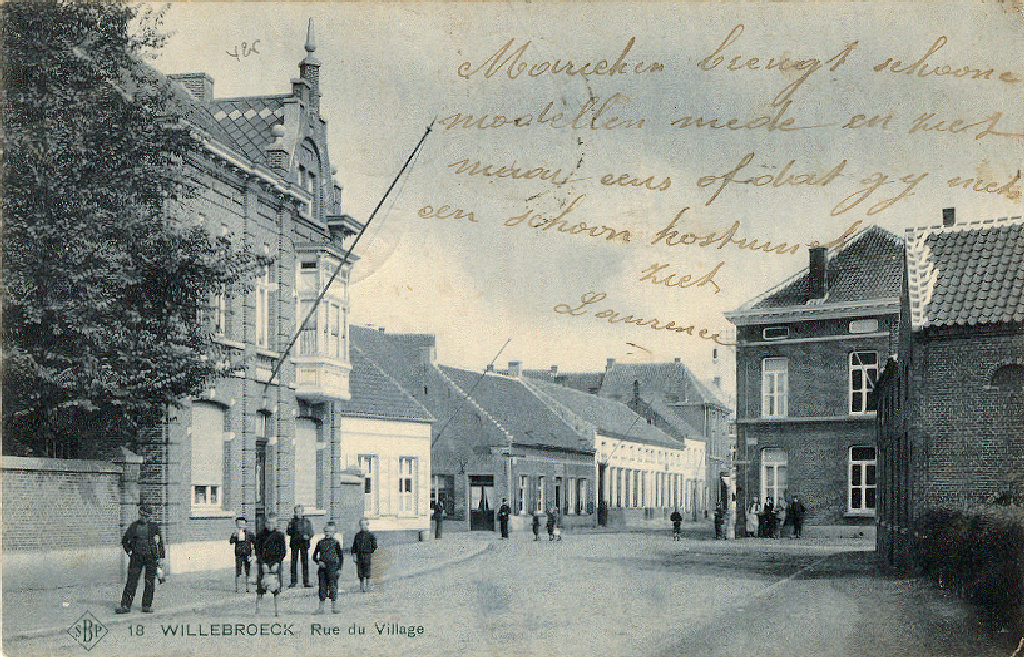 Marieken brengt schoone
modellen mede en niet
maar eens of dat gy met
een schoon kostuum
ziet
Laurence
SBP 18 WILLEBROECK Rue du Village